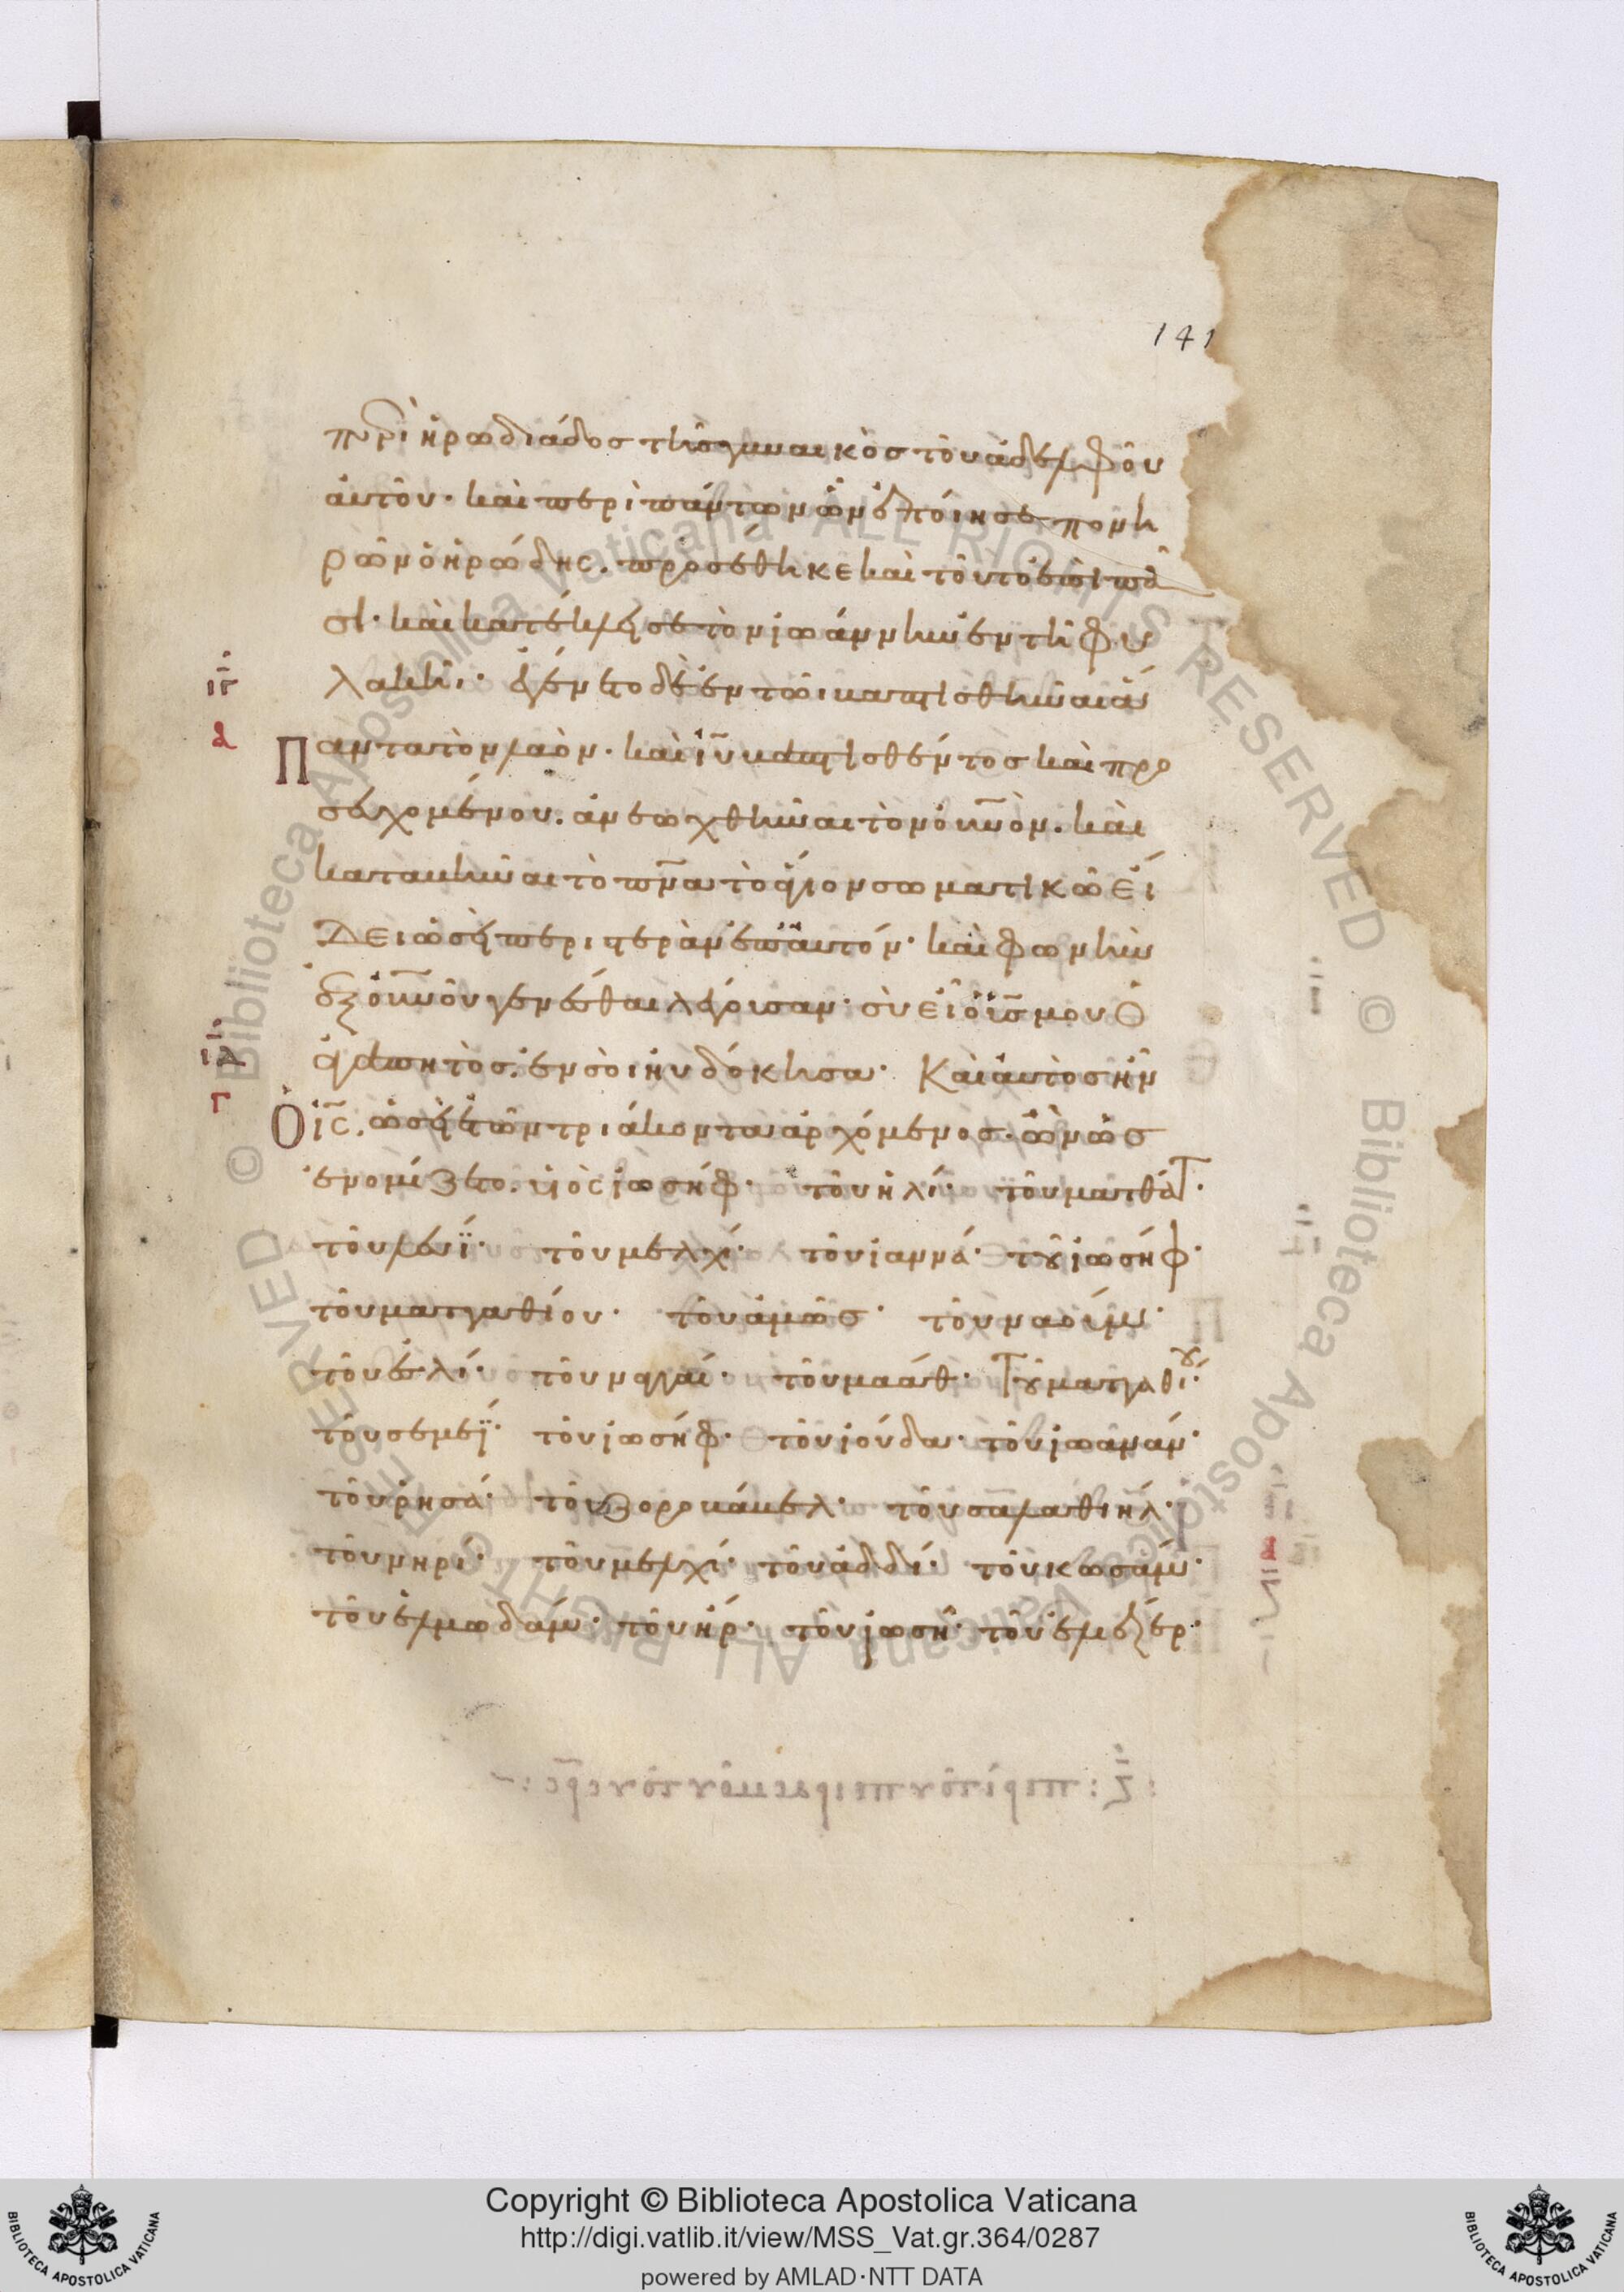 141
περὶ ἡρωδιάδος τῆς γυναικὸς τοῦ ἀδελφοῦ
αὐτοῦ· καὶ περὶ πάντων ὧν ἐποίησε πονη
ρῶν ὁ ἡρώδης. προσέθηκε καὶ τοῦτο ἐπὶ πᾶ
σι· καὶ κατέκλεισε τὸν ἰωάννην ἐν τῆ φυ
λακῆι· ἐγένετο δὲ ἐν τῶι βαπτισθῆναι ἅ
ιγ
α
Παντα τὸν λαὸν· καὶ ἰυ βαπτισθέντος καὶ προ
σευχομένου. ἀνεωχθῆναι τὸν οὐνὸν. καὶ
καταβῆναι τὸ πνα τὸ ἅγιον σωματικῶ εἴ
δει ὡσεὶ περιστερὰν ἐπ' αὐτόν· καὶ φωνὴν
ἐξ οὐνοῦ γενέσθαι λέγουσαν· σὺ εἶ ὁ υἱς μου ὁ
ἀγαπητὸς. ἐν σοὶ ηὐδόκησα· Καὶ αὐτὸς ἦν
ιδ
γ
Ὁ ις. ὡσεὶ ἐτῶν τριάκοντα ἀρχόμενος. ὢν ὡς
ἐνομίζετο. υἱὸς ἰωσήφ· τοῦ ἡλί· τοῦ ματθάτ·
τοῦ λευΐ· τοῦ μελχί· τοῦ ἰαννά· τοῦ ἰωσήφ·
τοῦ ματταθίου· τοῦ ἀμώς· τοῦ ναούμ·
τοῦ ἐσλί· τοῦ ναγγαί· τοῦ μαάθ· τοῦ ματταθίου·
τοῦ σεμεΐ· τοῦ ἰωσήφ· τοῦ ἰούδα· τοῦ ἰωανάν·
τοῦ ῥησά· τοῦ ζοροβάβελ· τοῦ σαλαθιήλ·
τοῦ νηρί· τοῦ μελχί· τοῦ ἀδδί· τοῦ κωσάμ·
τοῦ ἐλμωδάμ· τοῦ ἤρ· τοῦ ἰωσή· τοῦ ἐλιέζερ·
© Biblioteca Apostolica Vaticana ALL RIGHTS RESERVED © Biblioteca Apostolica Vaticana ALL RIGHTS RESERVED
BIBLIOTECA APOSTOLICA VATICANA
Copyright © Biblioteca Apostolica Vaticana
http://digi.vatlib.it/view/MSS_Vat.gr.364/0287
powered by AMLAD·NTT DATA
BIBLIOTECA APOSTOLICA VATICANA